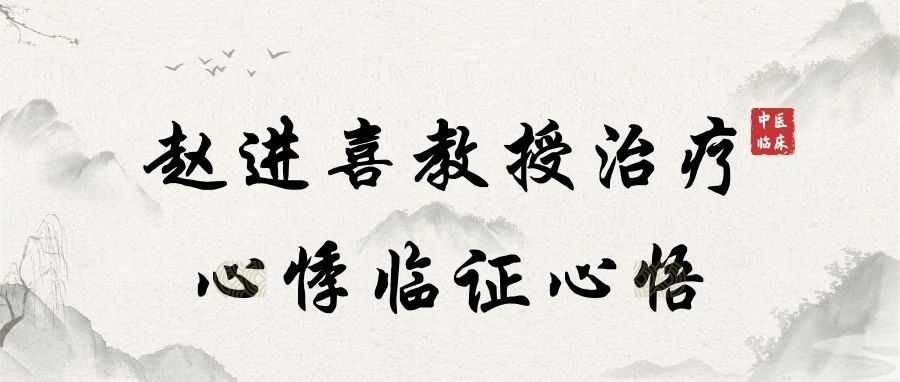 赵进喜教授治疗
中医
临床
心悸临证心悟